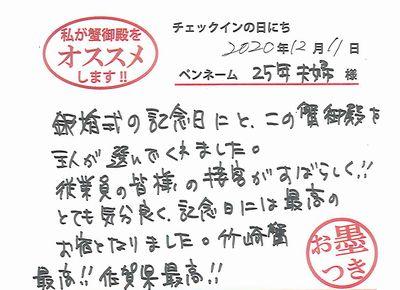 私が蟹御殿を
オススメ
します!!
チェックインの日にち
2020年12月11日
ペンネーム 25年夫婦 様
銀婚式の記念日にと、この蟹御殿を
主人が選んでくれました。
従業員の皆様の接客がすばらしく!!
とても気分良く、記念日には最高の
お宿となりました。竹崎蟹
最高!! 佐賀県最高!!
お墨
つき